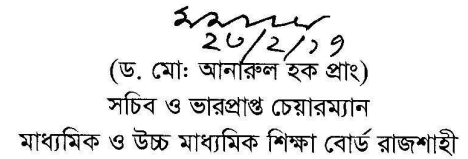 (ড. মো: আনারুল হক প্রাং)
সচিব ও ভারপ্রাপ্ত চেয়ারম্যান
মাধ্যমিক ও উচ্চ মাধ্যমিক শিক্ষা বোর্ড রাজশাহী